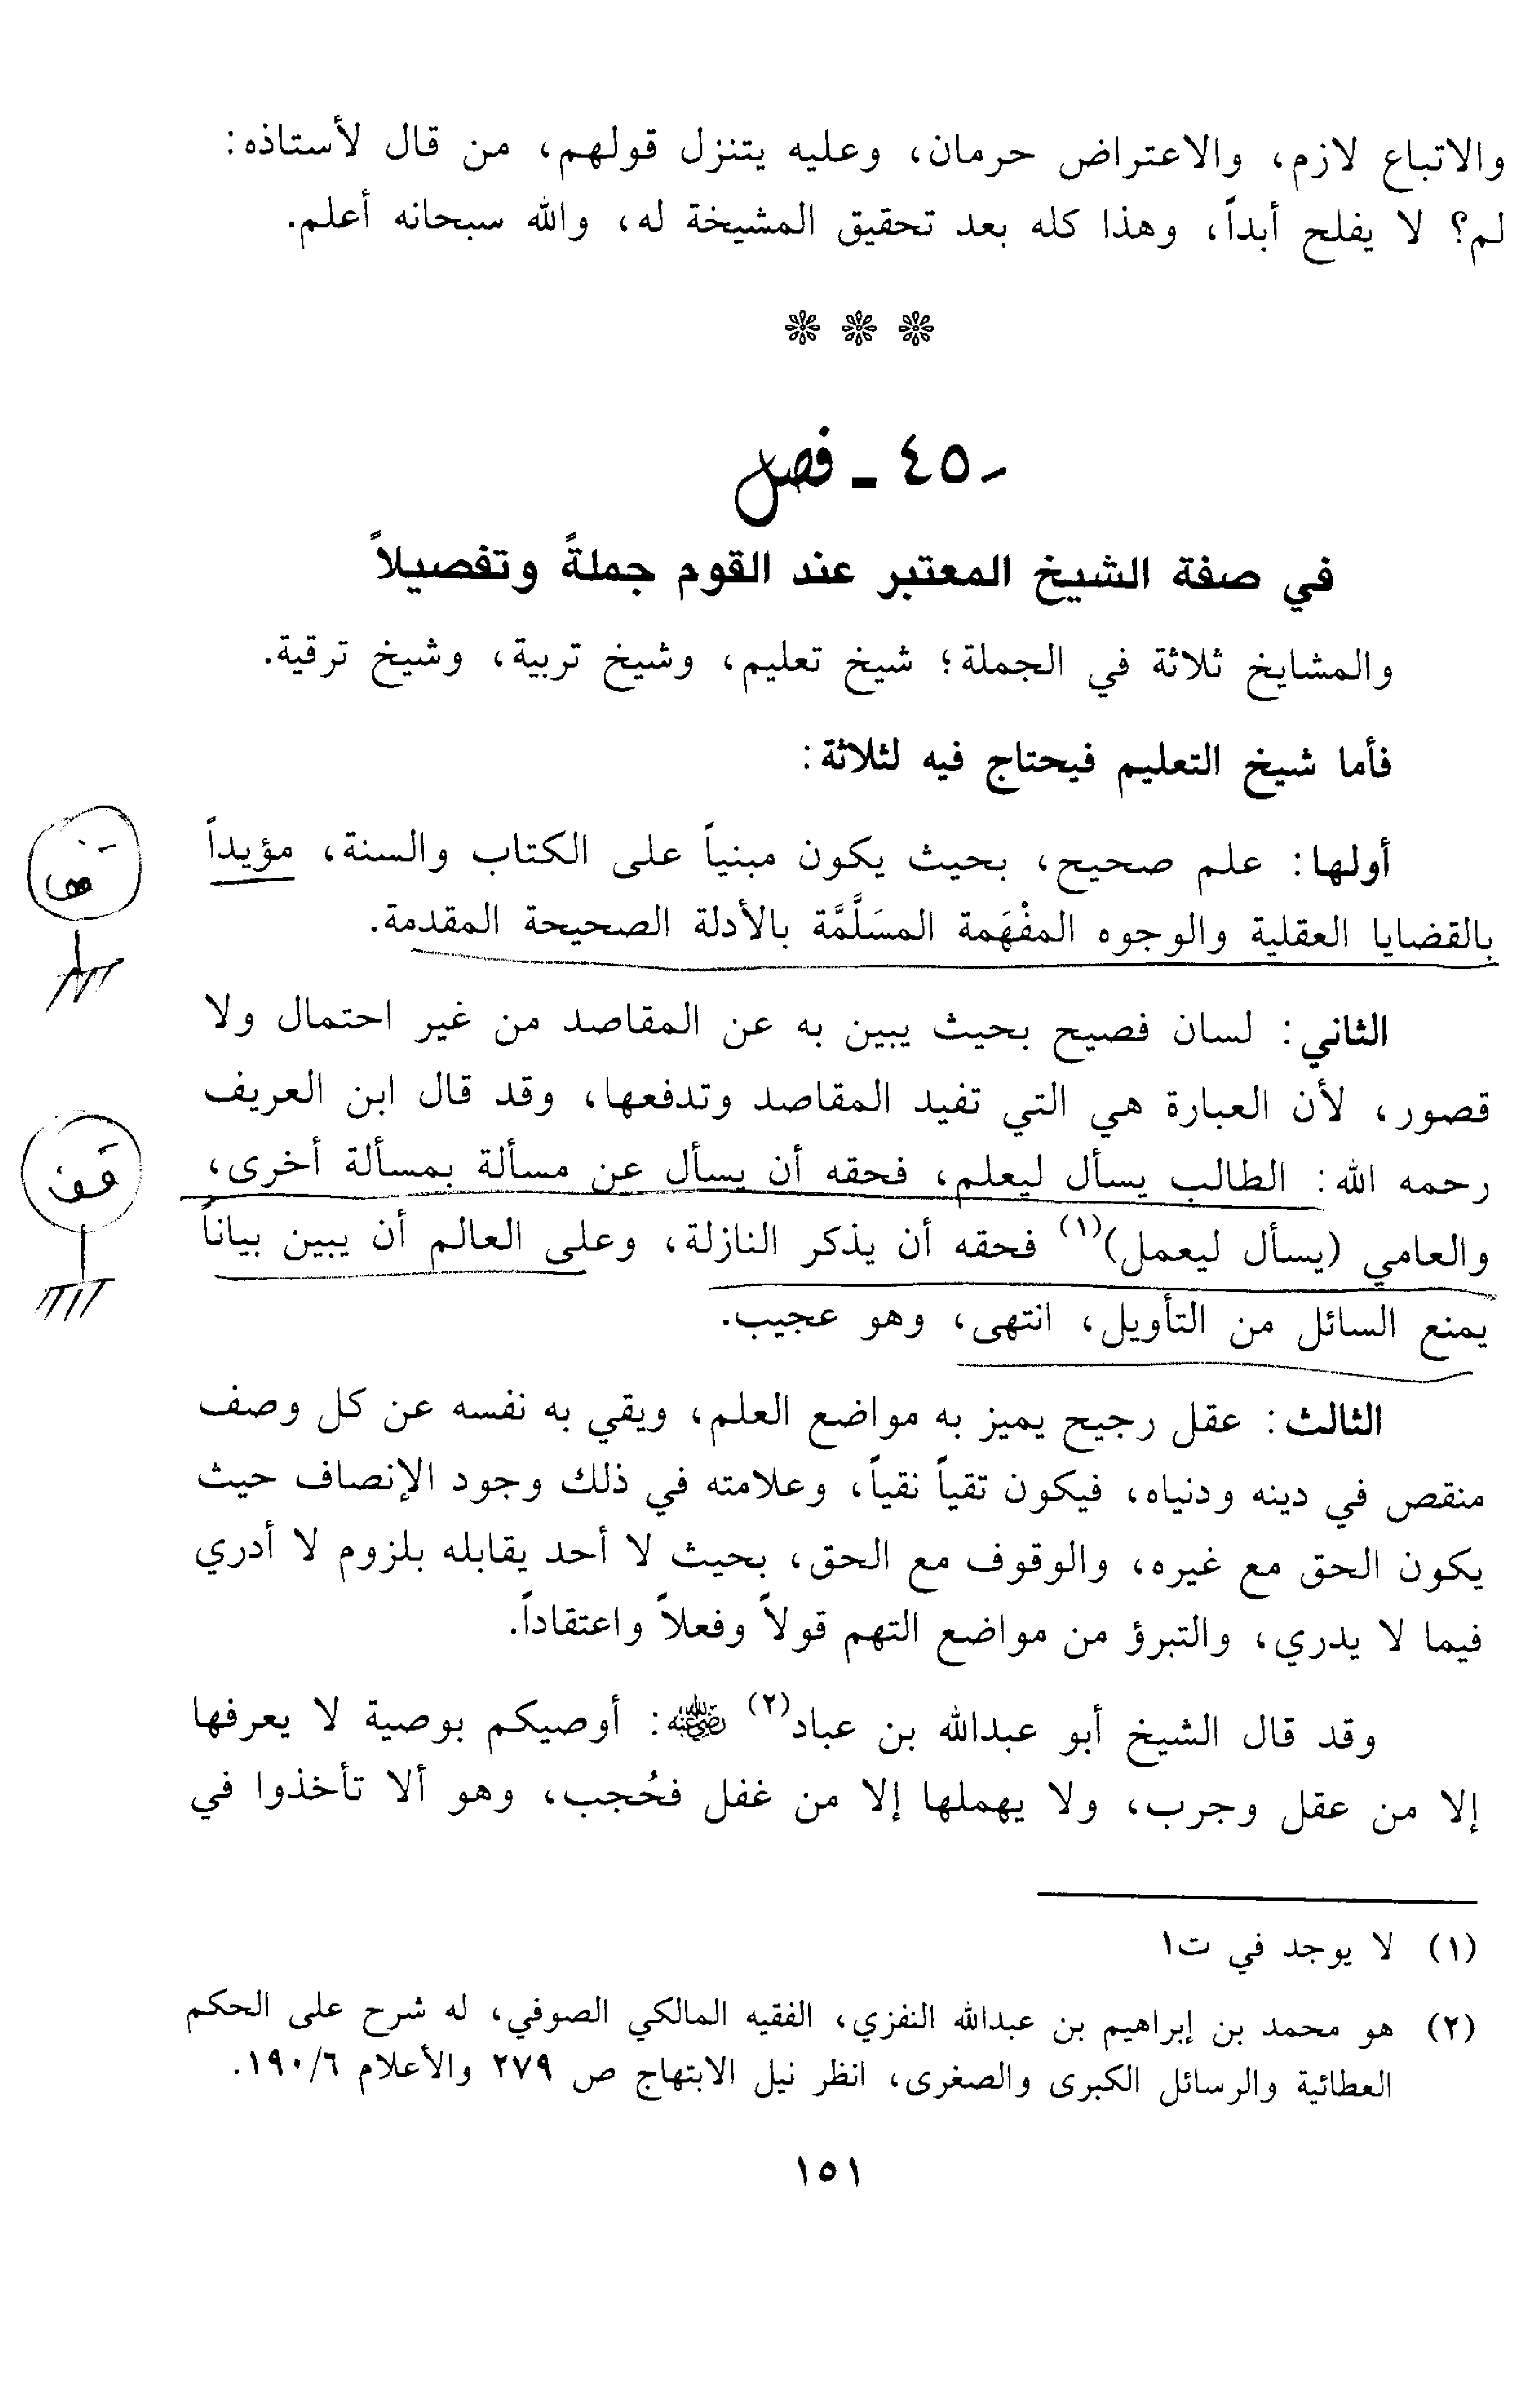 والاتباع لازم، والاعتراض حرمان، وعليه يتنزل قولهم، من قال لأستاذه:
لم؟ لا يفلح أبداً، وهذا كله بعد تحقيق المشيخة له، والله سبحانه أعلم.
٤٥ ـ فصل
في صفة الشيخ المعتبر عند القوم جملةً وتفصيلاً
والمشايخ ثلاثة في الجملة؛ شيخ تعليم، وشيخ تربية، وشيخ ترقية.
فأما شيخ التعليم فيحتاج فيه لثلاثة:
أولها: علم صحيح، بحيث يكون مبنياً على الكتاب والسنة، مؤيداً
بالقضايا العقلية والوجوه المفْهَمة المسَلَّمَّة بالأدلة الصحيحة المقدمة.
الثاني: لسان فصيح بحيث يبين به عن المقاصد من غير احتمال ولا
قصور، لأن العبارة هي التي تفيد المقاصد وتدفعها، وقد قال ابن العريف
رحمه الله: الطالب يسأل ليعلم، فحقه أن يسأل عن مسألة بمسألة أخرى،
قف
والعامي (يسأل ليعمل)(١) فحقه أن يذكر النازلة، وعلى العالم أن يبين بياناً
يمنع السائل من التأويل، انتهى، وهو عجيب.
الثالث: عقل رجيح يميز به مواضع العلم، ويقي به نفسه عن كل وصف
منقص في دينه ودنياه، فيكون تقياً نقياً، وعلامته في ذلك وجود الإنصاف حيث
يكون الحق مع غيره، والوقوف مع الحق، بحيث لا أحد يقابله بلزوم لا أدري
فيما لا يدري، والتبرؤ من مواضع التهم قولاً وفعلاً واعتقاداً.
وقد قال الشيخ أبو عبدالله بن عباد(٢) رضي الله عنه: أوصيكم بوصية لا يعرفها
إلا من عقل وجرب، ولا يهملها إلا من غفل فحُجب، وهو ألا تأخذوا في
(١) لا يوجد في ت١
(٢) هو محمد بن إبراهيم بن عبدالله النفزي، الفقيه المالكي الصوفي، له شرح على الحكم
العطائية والرسائل الكبرى والصغرى، انظر نيل الابتهاج ص ٢٧٩ والأعلام ١٩٠/٦.
١٥١